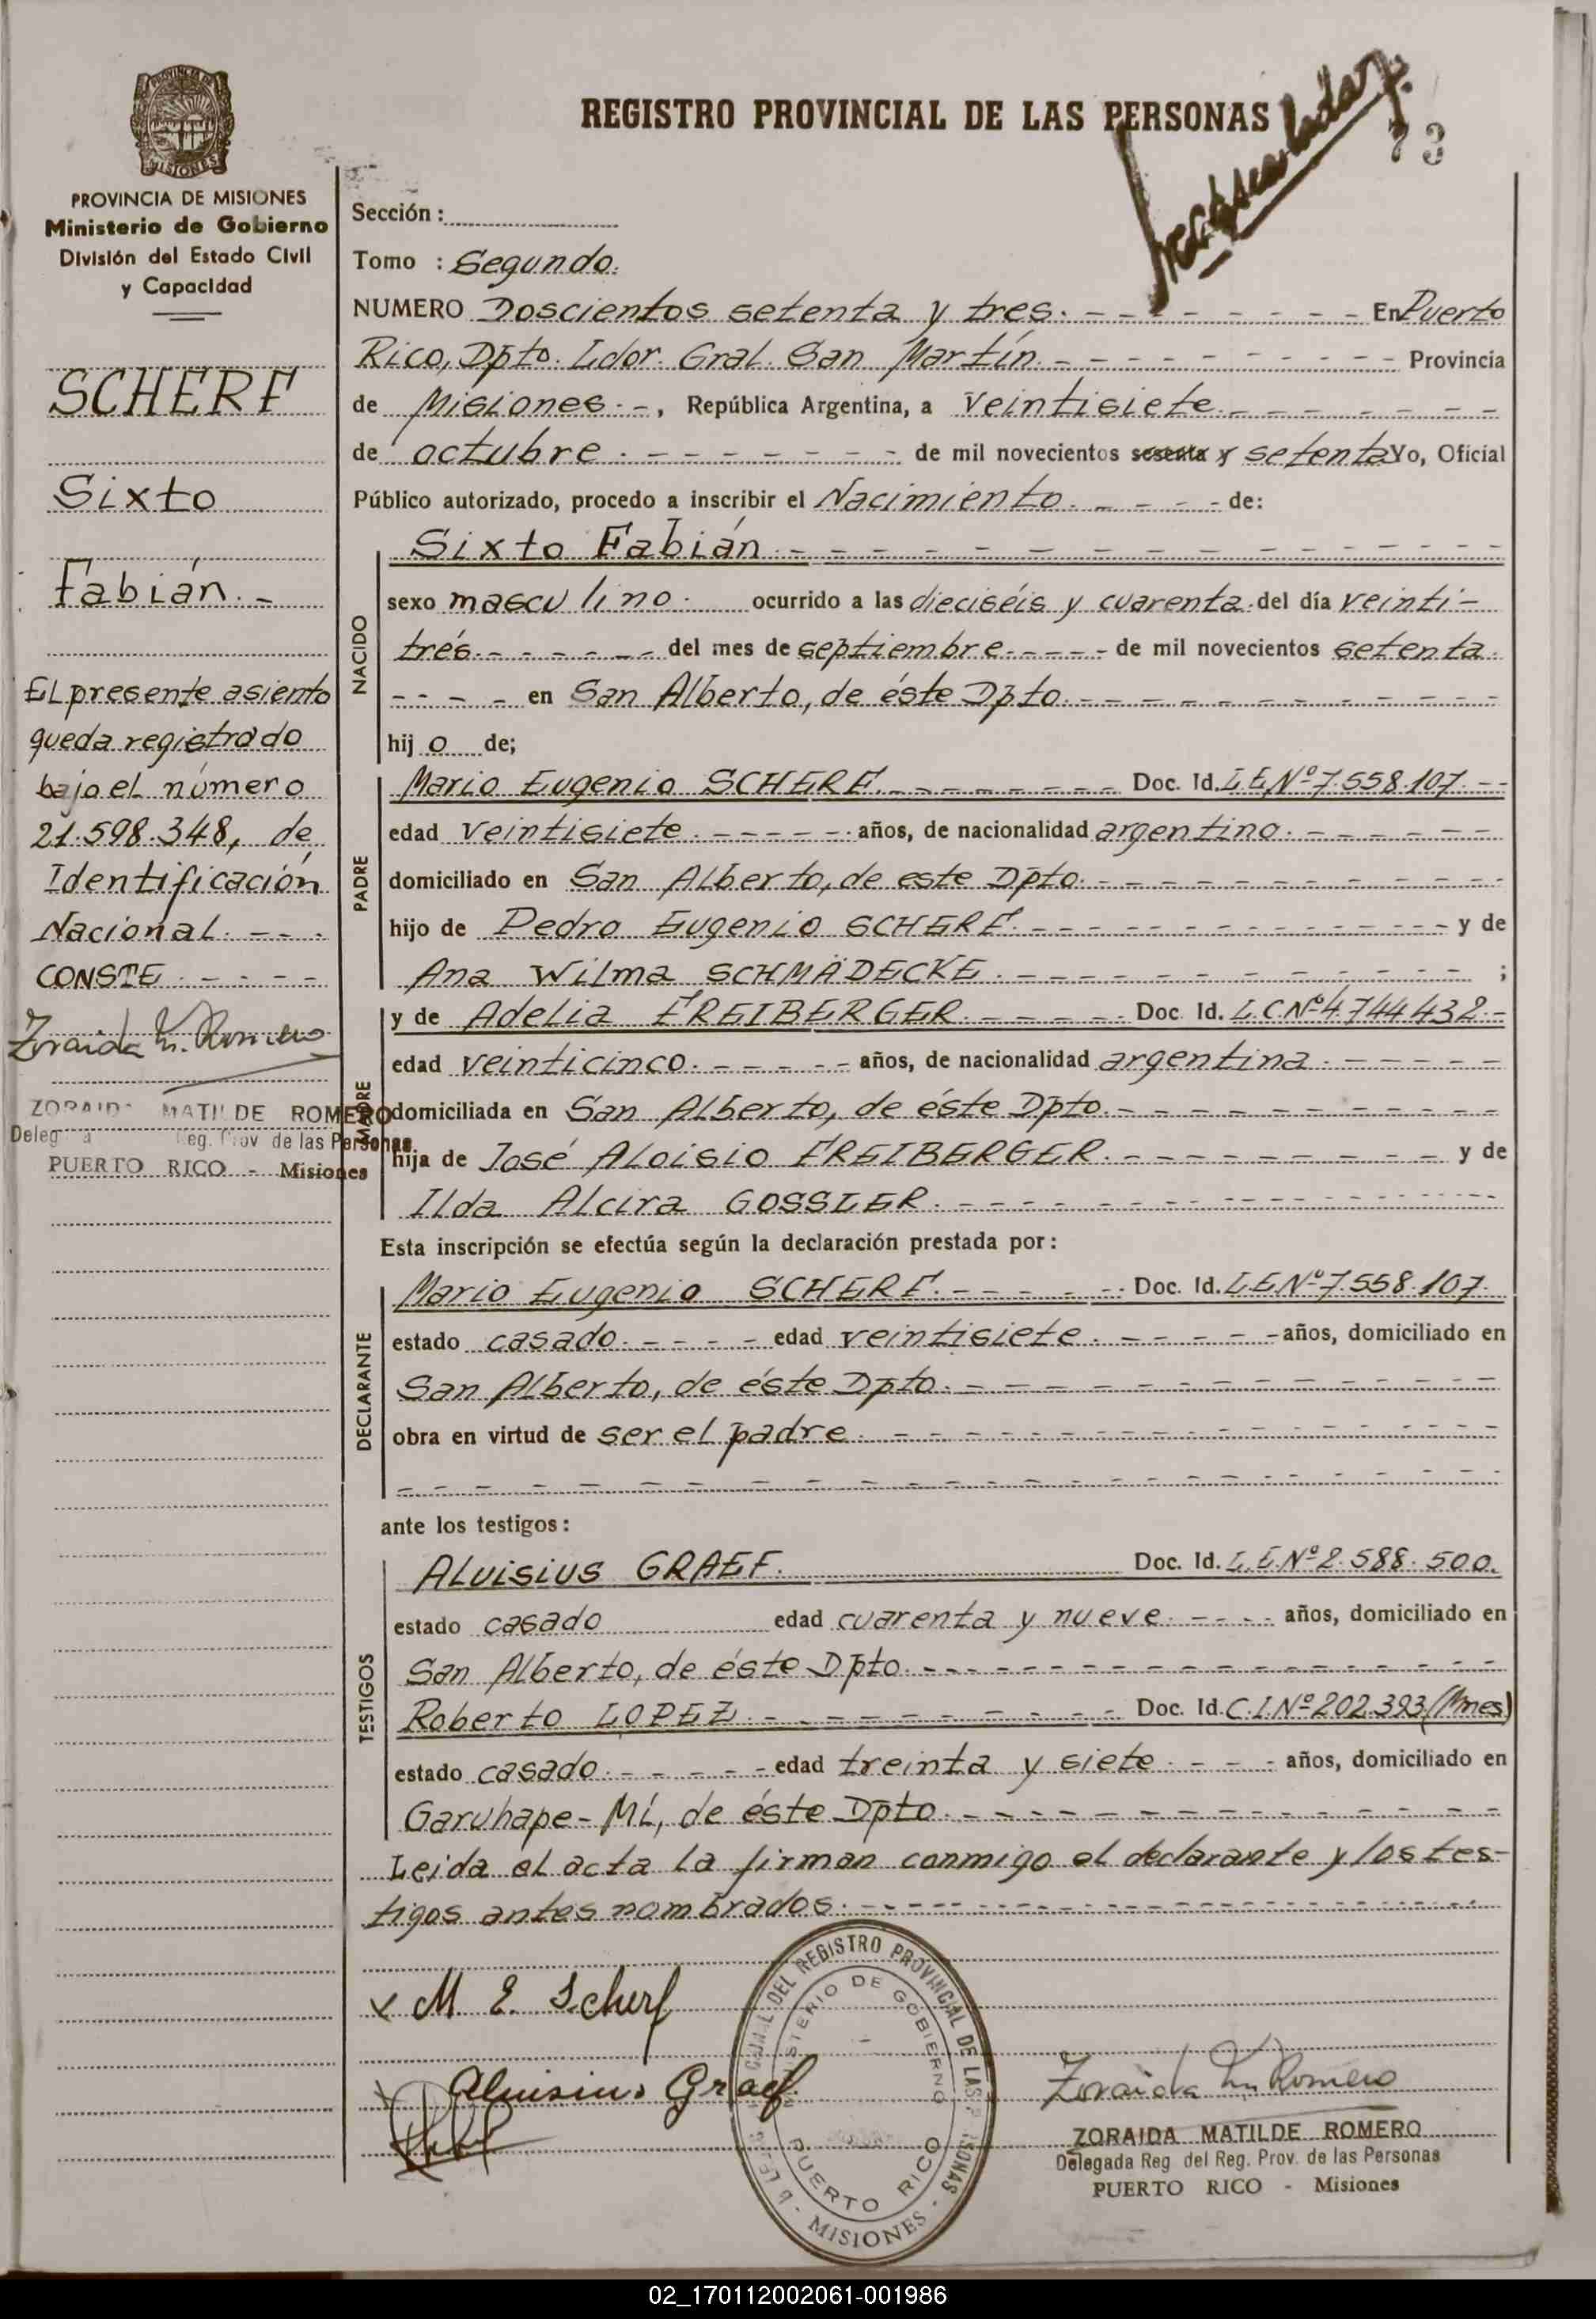 REGISTRO PROVINCIAL DE LAS PERSONAS
73
PROVINCIA DE MISIONES
Ministerio de Gobierno
División del Estado Civil
y Capacidad
SCHERF
Sixto
Fabián.-
El presente asiento
queda registrado
bajo el número
21.598.348, de
Identificación
Nacional.---.
CONSTE.----
Zoraida M. Romero
ZORAIDA MATILDE ROMERO
Delegada Reg. Prov de las Personas
PUERTO RICO - Misiones
Sección :
Tomo : Segundo.
NUMERO Doscientos setenta y tres. - En Puerto
Rico, Dpto. Ldor. Gral. San Martín. - Provincia
de Misiones.-, República Argentina, a veintisiete. -
de octubre. - de mil novecientos sesenta y setenta Yo, Oficial
Público autorizado, procedo a inscribir el Nacimiento. - de:
NACIDO
Sixto Fabián. -
sexo masculino. ocurrido a las dieciséis y cuarenta. del día veinti-
trés. - del mes de septiembre. - de mil novecientos setenta.
- en San Alberto, de éste Dpto. -
hij o de;
PADRE
Mario Eugenio SCHERF. - Doc. Id. L.E.Nº 7.558.107.--
edad veintisiete. - años, de nacionalidad argentino. -
domiciliado en San Alberto, de este Dpto. -
hijo de Pedro Eugenio SCHERF. - y de
Ana Wilma SCHMÄDECKE. - ;
MADRE
y de Adelia FREIBERGER. - Doc. Id. L.C.Nº 4.744.432.-
edad veinticinco. - años, de nacionalidad argentina. -
domiciliada en San Alberto, de éste Dpto. -
hija de José Aloisio FREIBERGER. - y de
Ilda Alcira GOSSLER. -
Esta inscripción se efectúa según la declaración prestada por:
DECLARANTE
Mario Eugenio SCHERF. - Doc. Id. L.E.Nº 7.558.107.
estado casado. - edad veintisiete. - años, domiciliado en
San Alberto, de éste Dpto. -
obra en virtud de ser el padre. -
ante los testigos:
TESTIGOS
Aluisius GRAEF. Doc. Id. L.E.Nº 2.588.500.
estado casado edad cuarenta y nueve. - años, domiciliado en
San Alberto, de éste Dpto. -
Roberto LOPEZ. - Doc. Id. C.I.Nº 202.393 (Mnes)
estado casado. - edad treinta y siete. - años, domiciliado en
Garuhape-Mí, de éste Dpto. -
Leida el acta la firman conmigo el declarante y los tes-
tigos antes nombrados. -
x M E. Scherf
Aluisius Graef
DEL REGISTRO PROVINCIAL DE LAS PERSONAS - MISIONES -
MINISTERIO DE GOBIERNO
PUERTO RICO
Zoraida M. Romero
ZORAIDA MATILDE ROMERO
Delegada Reg del Reg. Prov. de las Personas
PUERTO RICO - Misiones
02_170112002061-001986